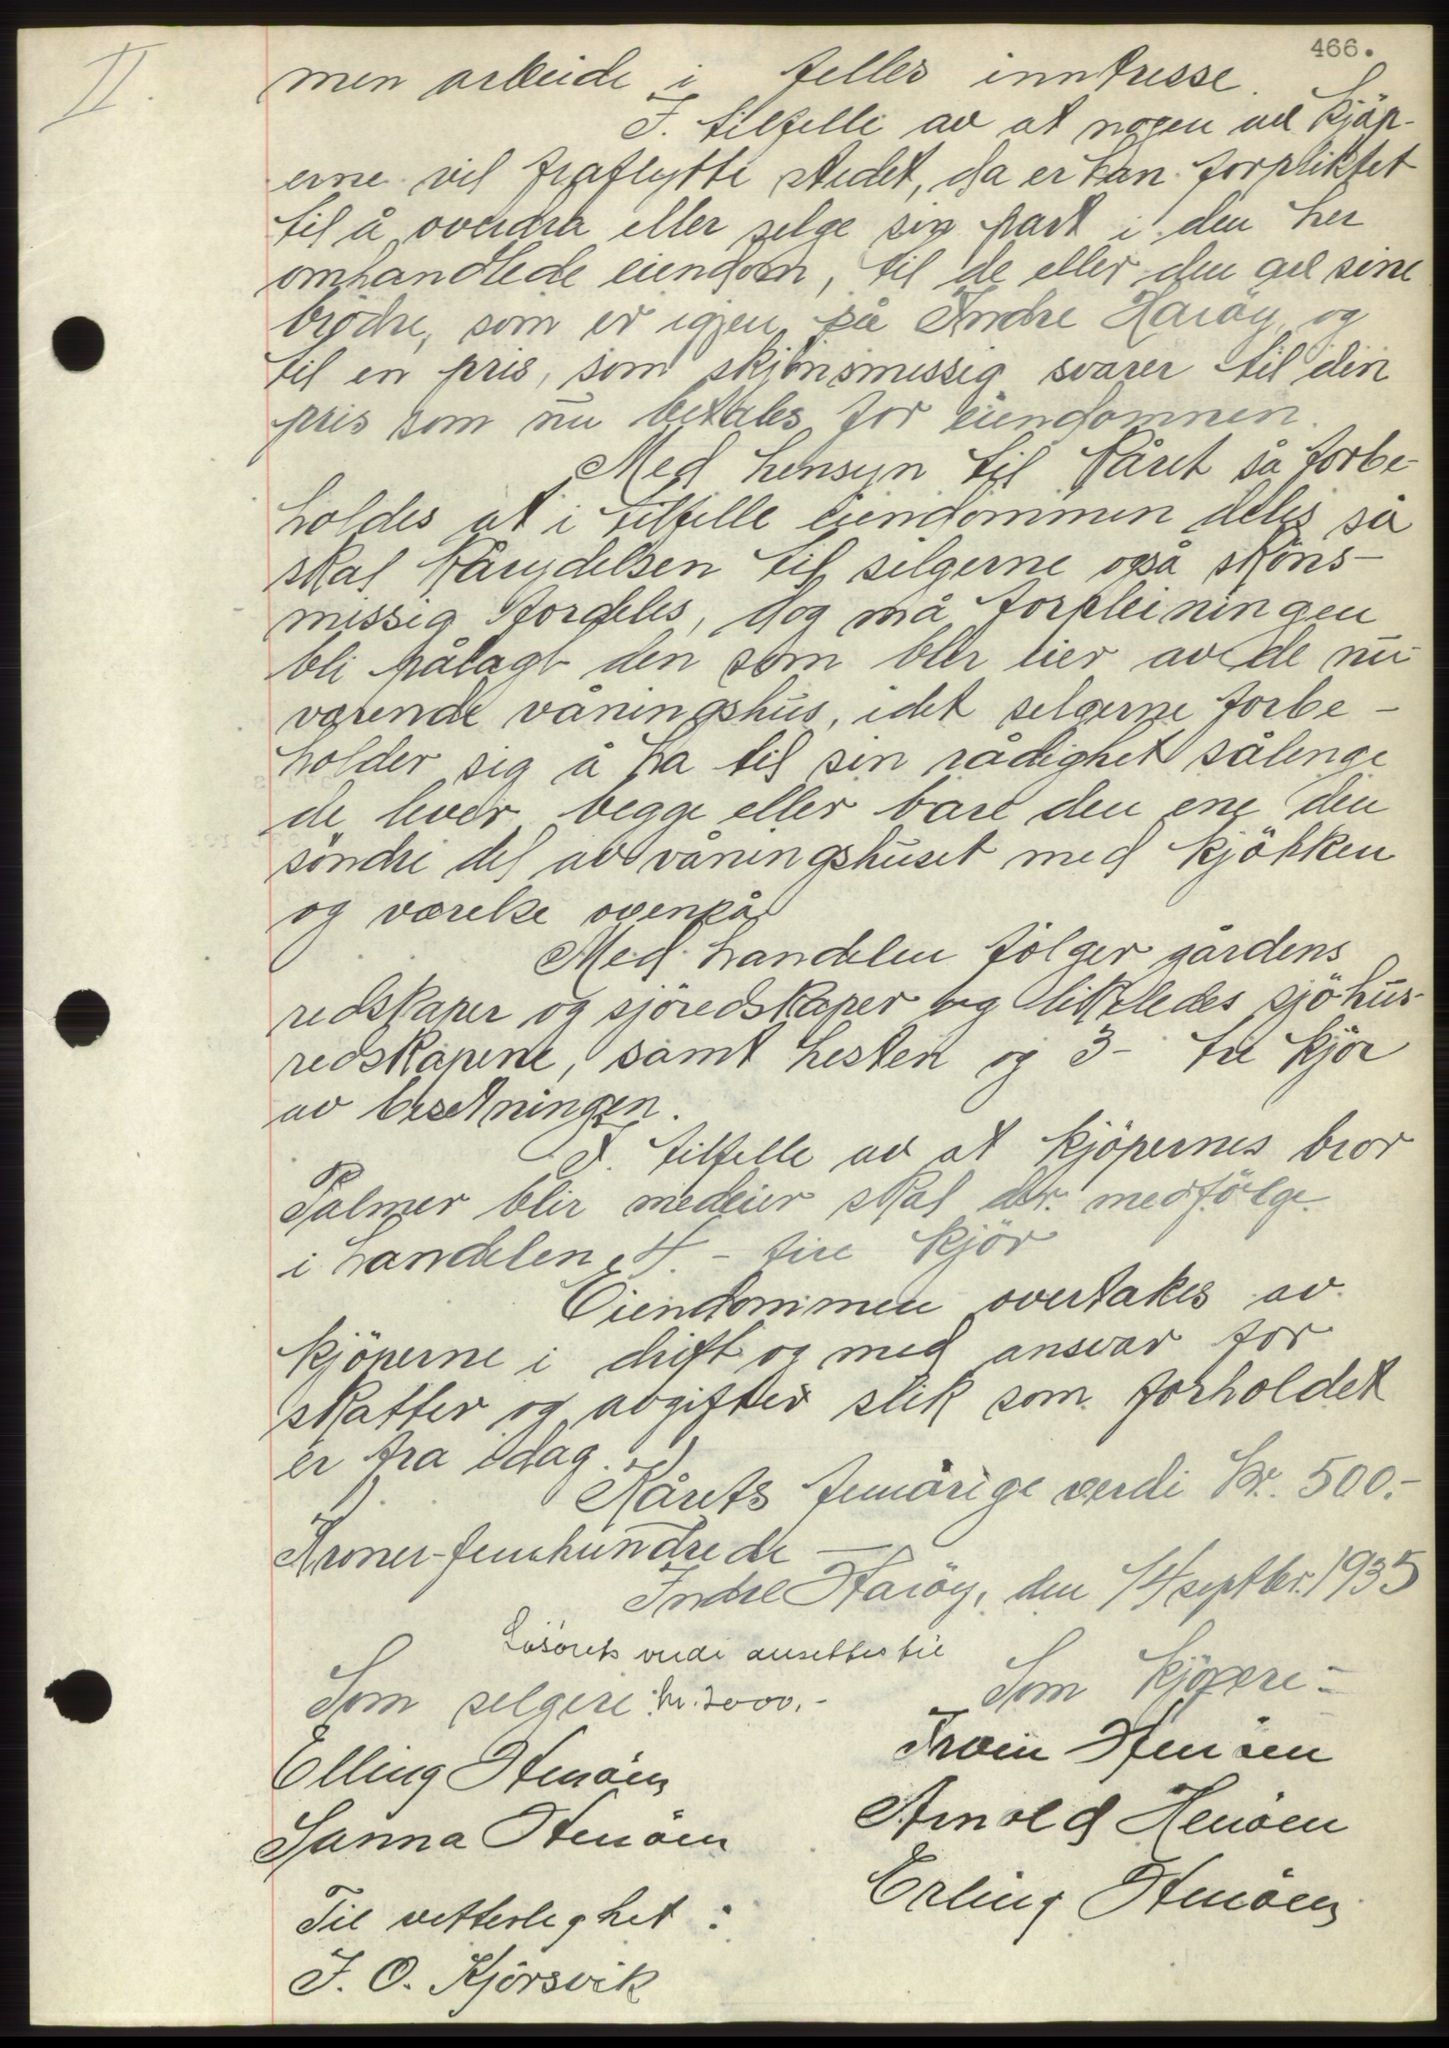 466.
II.
men arbeide i felles inntresse.
I. tilfelle av at nogen av kjöp-
erne vil fraflytte stedet, da er han forpliktet
til å overdra eller selge sin part i den her
omhandlede eiendom, til de eller den av sine
brödre, som er igjen på Indre Haröy, og
til en pris, som skjönsmessig svarer til den
pris som nu betales for eiendommen.
Med hensyn til kåret så forbe-
holdes at i tilfelle eiendommen deles så
skal kårydelsen til selgerne også sköns-
messig fordeles, dog må forpleiningen
bli pålagt den som blir eier av de nu-
værende våningshus, idet selgerne forbe-
holder sig å ha til sin rådighet sålenge
de lever begge eller bare den ene den
söndre del av våningshuset med kjökken
og værelse ovenpå.
Med handelen fölger gårdens
redskaper og sjöredskaper og likeledes sjöhus-
redskapene, samt hesten og 3- tre kjör
av besetningen.
I. tilfelle av at kjöpernes bror
Palmer blir medeier skal der medfölge
i handelen 4. - fire kjör
Eiendommen overtakes av
kjöperne i drift og med ansvar for
skatter og avgifter slik som forholdet
er fra idag.
Kårets femårige verdi kr. 500.-
Kroner-femhundrede —
Indre Haröy, den 14 septbr. 1935
Lösörets verdi ansettes til
Som selgere: kr. 2000.-
Som kjöpere:-
Elling Henöen
Sanna Henöen
Henöen
Arnold Henöen
Erling Henöen
Til vitterlighet:
J. O. Kjörsvik